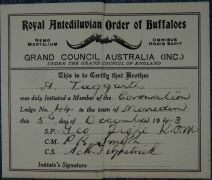 Royal Antediluvian Order of Buffaloes
NEMO MORTALIUM
OMNIBUS HORIS SAPIT
GRAND COUNCIL AUSTRALIA (INC.)
UNDER THE GRAND COUNCIL OF ENGLAND
This is to Certify that Brother
A. Taggart
was duly Initiated a Member of the Coronation
Lodge No. 44 in the Town of Merredin
this 5th day of December 1943
S.P. Leo K.O.M
C.M.
C.S. Fitzpatrick
Initiate's Signature